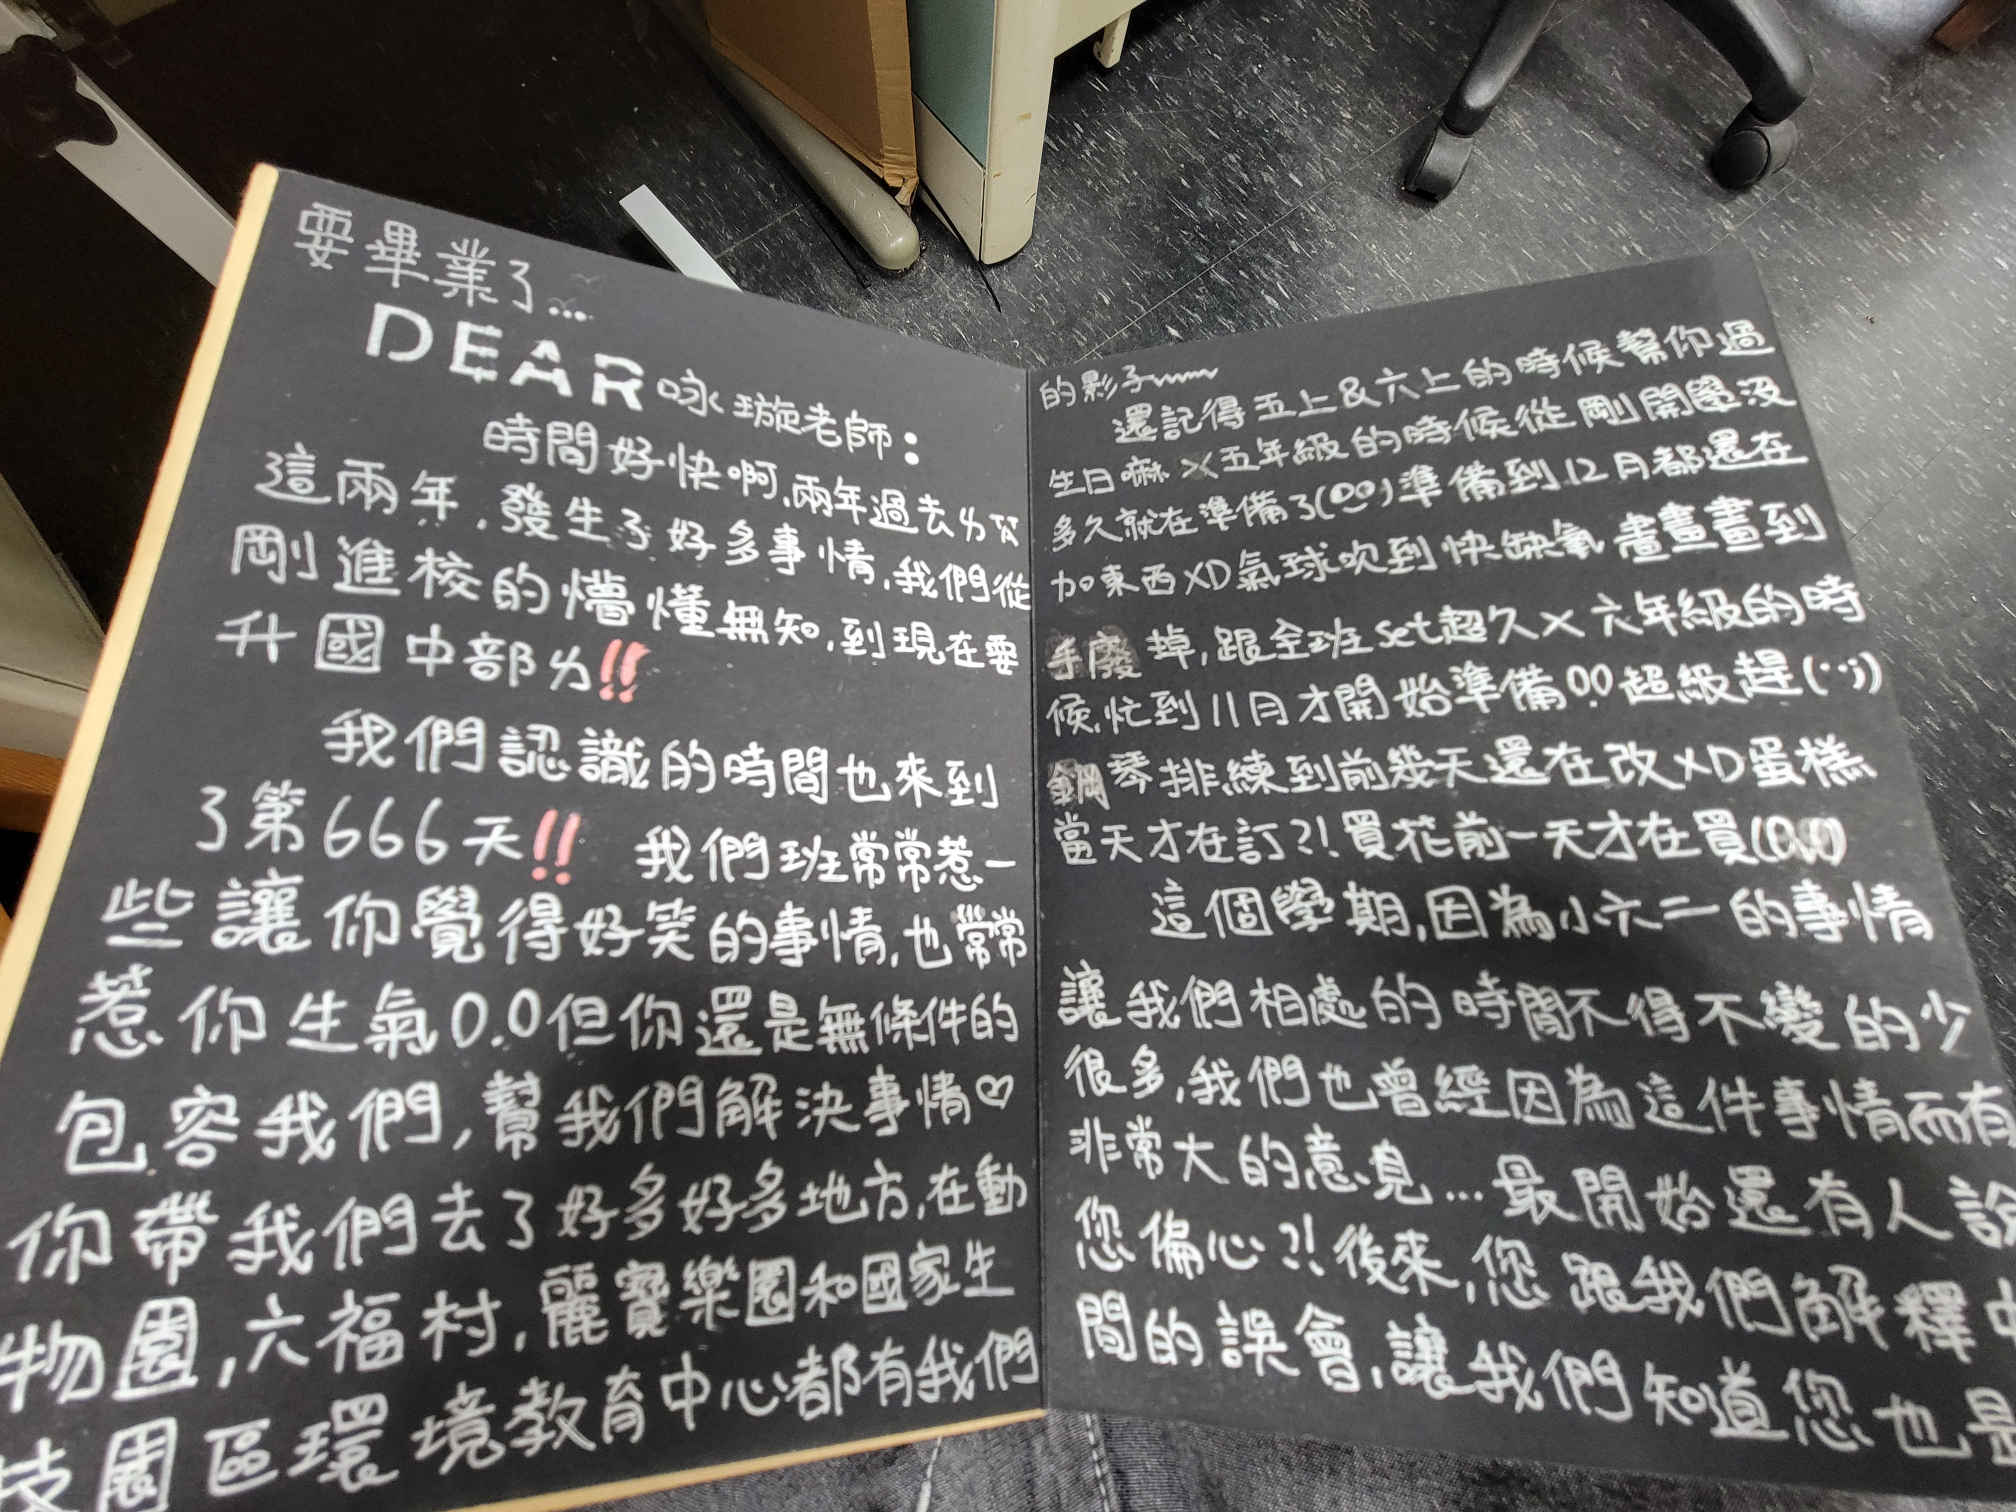 要畢業了...
DEAR 咏璇老師：
時間好快啊，兩年過去ㄌㄞ
這兩年，發生了好多事情，我們從
剛進校的懵懂無知，到現在要
升國中部ㄌ!!
我們認識的時間也來到
了第666天!! 我們班常常惹一
些讓你覺得好笑的事情，也常常
惹你生氣0.0但你還是無條件的
包容我們，幫我們解決事情♡
你帶我們去了好多好多地方，在動
物園，六福村，麗寶樂園和國家生
技園區環境教育中心都有我們
的影子~~~
還記得五上&六上的時候幫你過
生日嘛 X五年級的時候從剛開學沒
多久就在準備了(○○)準備到12月都還在
加東西XD氣球吹到快缺氧畫畫畫到
手廢掉，跟全班set超久X六年級的時
候，忙到11月才開始準備00超級趕(··))
鋼琴排練到前幾天還在改XD蛋糕
當天才在訂?!買花前一天才在買(0.0)
這個學期，因為小六二的事情
讓我們相處的時間不得不變的少
很多，我們也曾經因為這件事情而有
非常大的意見...最開始還有人說
您偏心?!後來，您跟我們解釋中
間的誤會，讓我們知道您也是